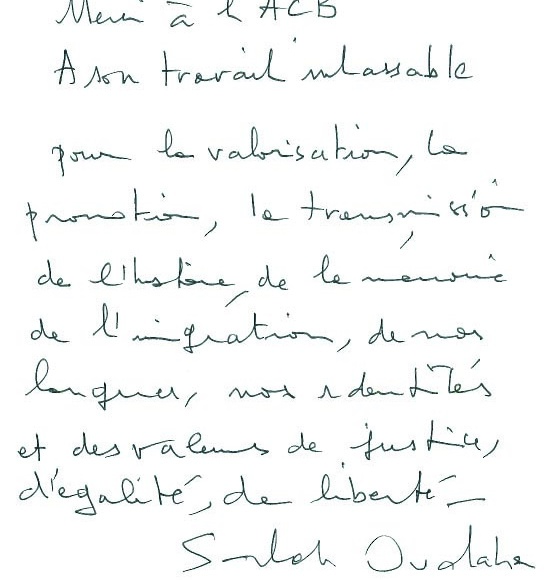 Merci à l'ACB
A son travail inlassable
pour la valorisation, la
promotion, la transmission
de l'histoire, de la mémoire
de l'immigration, de nos
langues, nos identités
et des valeurs de justice,
d'égalité, de liberté -
Salah Oudahar